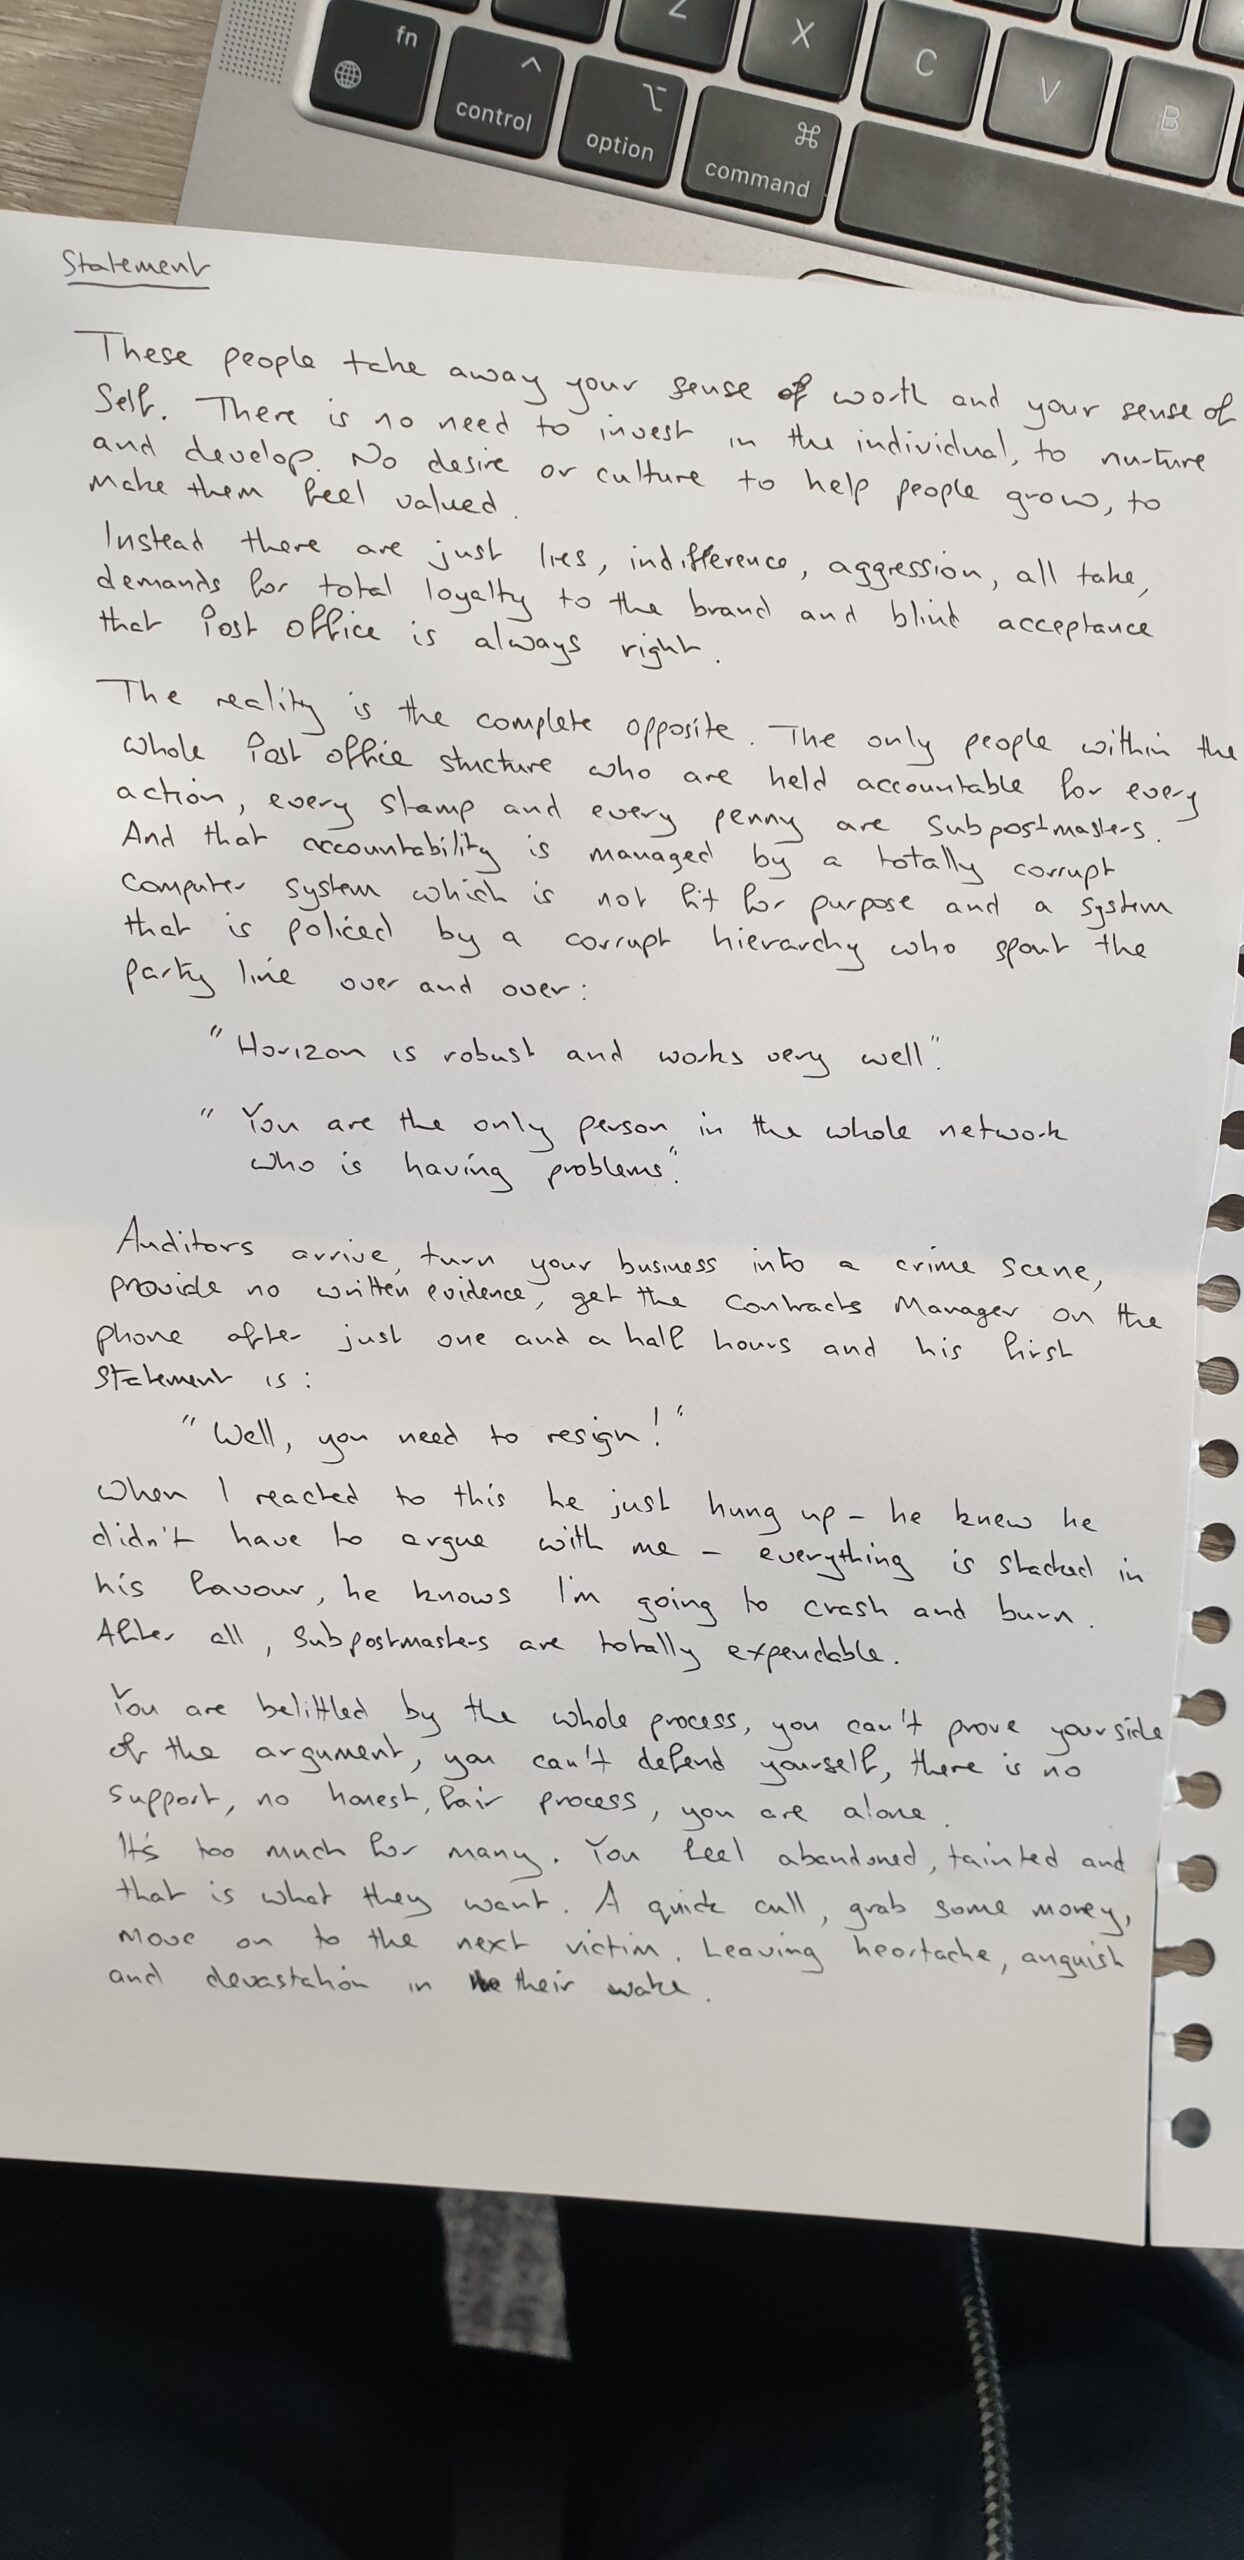 fn
Z
X
C
V
B
control
option
command
Statement
These people take away your sense of worth and your sense of
Self. There is no need to invest in the individual, to nurture
and develop. No desire or culture to help people grow, to
make them feel valued.
Instead there are just lies, indifference, aggression, all take,
demands for total loyalty to the brand and blind acceptance
that Post Office is always right.
The reality is the complete opposite. The only people within the
whole Post Office structure who are held accountable for every
action, every stamp and every penny are Subpostmasters.
And that accountability is managed by a totally corrupt
computer system which is not fit for purpose and a system
that is policed by a corrupt hierarchy who spout the
party line over and over:
"Horizon is robust and works very well".
"You are the only person in the whole network
who is having problems".
Auditors arrive, turn your business into a crime scene,
provide no written evidence, get the Contracts Manager on the
phone after just one and a half hours and his first
Statement is:
"Well, you need to resign!"
When I reacted to this he just hung up - he knew he
didn't have to argue with me - everything is stacked in
his favour, he knows I'm going to crash and burn.
After all, Subpostmasters are totally expendable.
You are belittled by the whole process, you can't prove your side
of the argument, you can't defend yourself, there is no
support, no honest, fair process, you are alone.
It's too much for many. You feel abandoned, tainted and
that is what they want. A quick cull, grab some money,
move on to the next victim. Leaving heartache, anguish
and devastation in their wake.